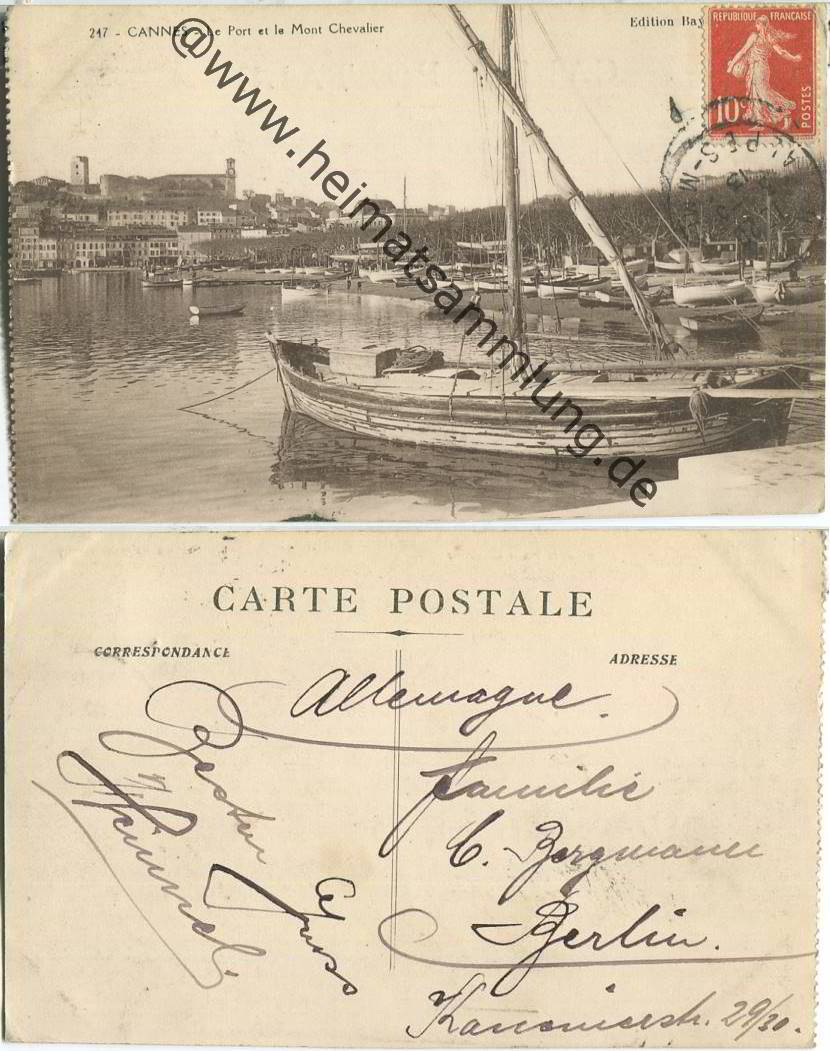 217 - CANNES - Le Port et le Mont Chevalier
Edition Ba
REPUBLIQUE FRANÇAISE
10c
POSTES
ALPES-M
13
@www.heimatsammlung.de
CARTE POSTALE
CORRESPONDANCE
ADRESSE
Allemagne.
Besten
Gruss
Familie
C. Bergmann
Berlin.
Kanonierstr. 29/30.